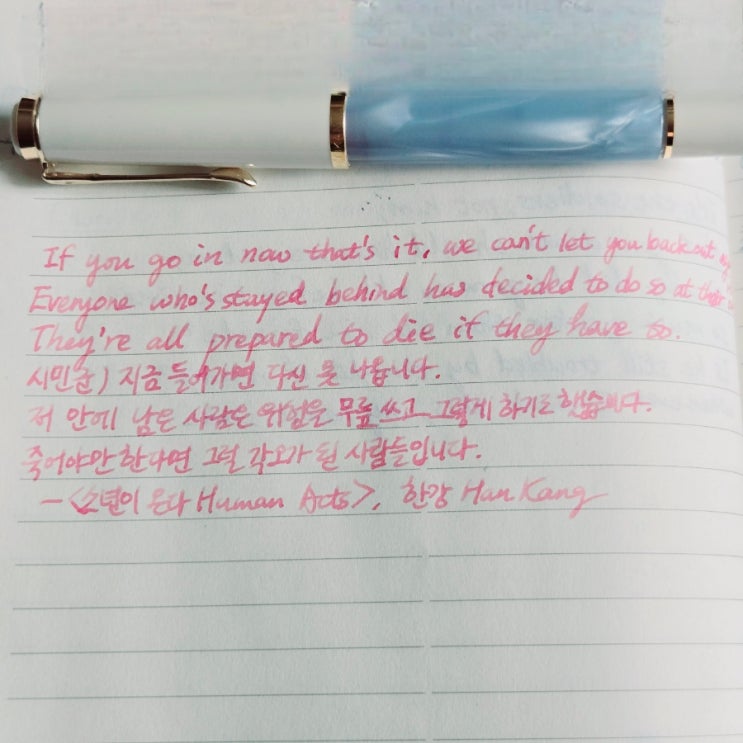 If you go in now that's it, we can't let you back out
Everyone who's stayed behind has decided to do so at their
They're all prepared to die if they have to.
시민군) 지금 들어가면 다신 못 나옵니다.
저 안에 남은 사람은 위험을 무릎 쓰고 그렇게 하기로 했습니다.
죽어야만 한다면 그럴 각오가 된 사람들입니다.
-<소년이 온다 Human Acts>, 한강 Han Kang